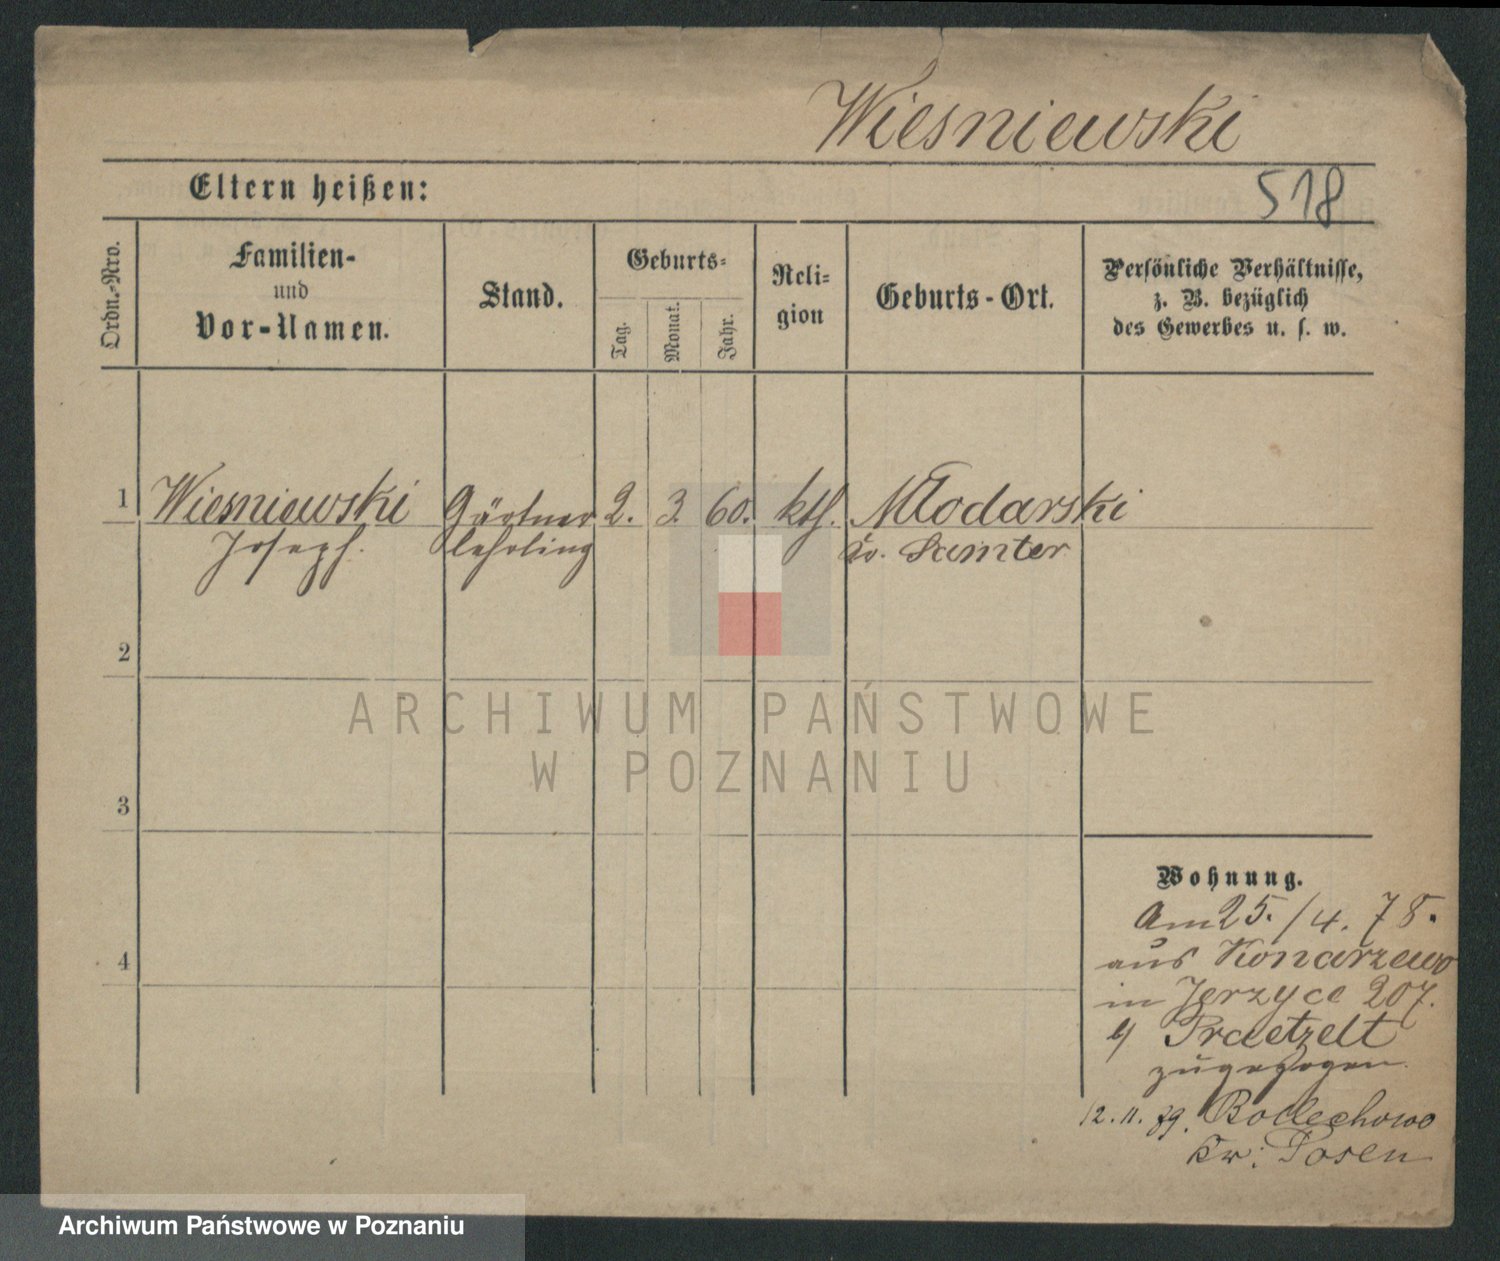 Wiesniewski
Eltern heißen:
518
Ordn.-Nro.
Familien-
und
Vor-Namen.
Stand.
Geburts-
Tag.
Monat.
Jahr.
Reli-
gion
Geburts-Ort.
Persönliche Verhältnisse,
z. B. bezüglich
des Gewerbes u. s. w.
1 Wiesniewski Gärtner 2. 3. 60. kth. Młodarski
Joseph. lehrling Kr. Samter
2
3
4
Wohnung.
Am 25./4. 78.
aus Konarzewo
in Jerzyce 207.
b/ Praetzelt
zugezogen.
12.11.79. Bollechowo
Kr: Posen
ARCHIWUM PAŃSTWOWE
W POZNANIU
Archiwum Państwowe w Poznaniu